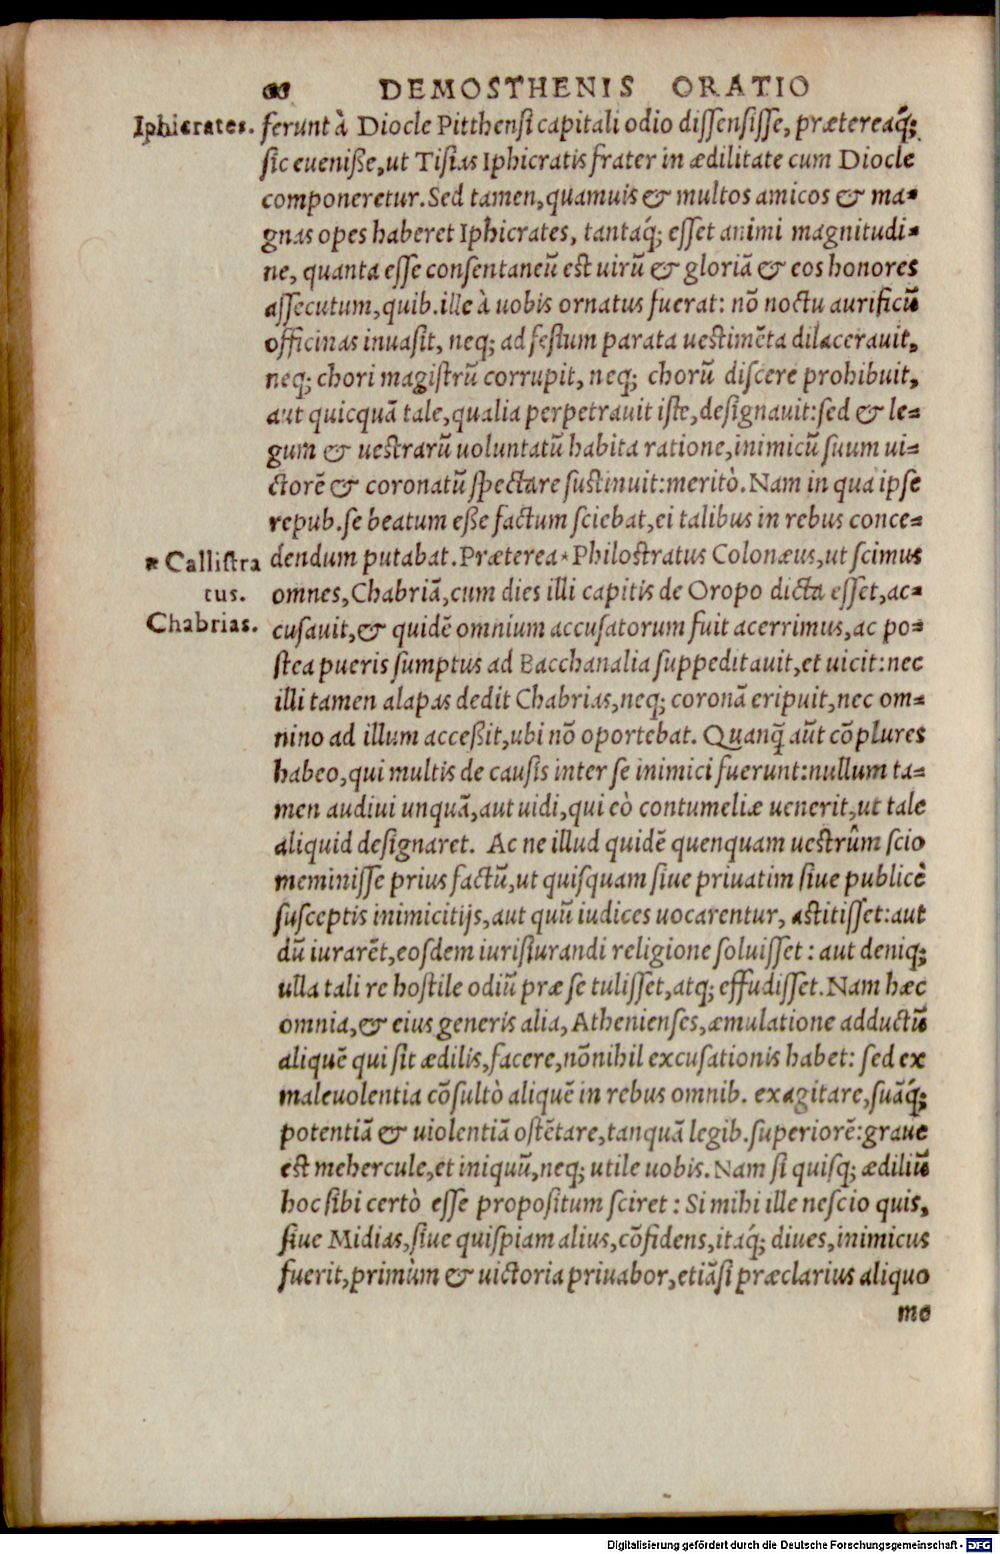 DEMOSTHENIS ORATIO
Iphicrates. ferunt à Diocle Pitthensi capitali odio dissensisse, prætereaq́;
sic eueniße, ut Tisias Iphicratis frater in ædilitate cum Diocle
componeretur. Sed tamen, quamuis & multos amicos & ma-
gnas opes haberet Iphicrates, tantaq́; esset animi magnitudi-
ne, quanta esse consentaneũ est uirũ & gloriã & eos honores
assecutum, quib. ille à uobis ornatus fuerat: nõ noctu aurificũ
officinas inuasit, neq; ad festum parata uestimẽta dilacerauit,
neq; chori magistrũ corrupit, neq; chorũ discere prohibuit,
aut quicquã tale, qualia perpetrauit iste, designauit: sed & le-
gum & uestrarũ uoluntatũ habita ratione, inimicũ suum ui-
ctorẽ & coronatũ spectare sustinuit: meritò. Nam in qua ipse
repub. se beatum eße factum sciebat, ei talibus in rebus conce-
* Callistra dendum putabat. Præterea * Philostratus Colonæus, ut scimus
tus. omnes, Chabriã, cum dies illi capitis de Oropo dicta esset, ac-
Chabrias. cusauit, & quidẽ omnium accusatorum fuit acerrimus, ac po-
stea pueris sumptus ad Bacchanalia suppeditauit, et uicit: nec
illi tamen alapas dedit Chabrias, neq; coronã eripuit, nec om-
nino ad illum acceßit, ubi nõ oportebat. Quanq̃ aũt cõplures
habeo, qui multis de causis inter se inimici fuerunt: nullum ta-
men audiui unquã, aut uidi, qui eò contumeliæ uenerit, ut tale
aliquid designaret. Ac ne illud quidẽ quenquam uestrûm scio
meminisse prius factũ, ut quisquam siue priuatim siue publicè
susceptis inimicitijs, aut quũ iudices uocarentur, astitisset: aut
dũ iurarẽt, eosdem iurisiurandi religione soluisset: aut deniq;
ulla tali re hostile odiũ præ se tulisset, atq; effudisset. Nam hæc
omnia, & eius generis alia, Athenienses, æmulatione adductũ
aliquẽ qui sit ædilis, facere, nõnihil excusationis habet: sed ex
maleuolentia cõsultò aliquẽ in rebus omnib. exagitare, suãq́;
potentiã & uiolentiã ostẽtare, tanquã legib. superiorẽ: graue
est mehercule, et iniquũ, neq; utile uobis. Nam si quisq; ædiliũ
hoc sibi certò esse propositum sciret: Si mihi ille nescio quis,
siue Midias, siue quispiam alius, cõfidens, itaq́; diues, inimicus
fuerit, primùm & uictoria priuabor, etiãsi præclarius aliquo
me
Digitalisierung gefördert durch die Deutsche Forschungsgemeinschaft - DFG